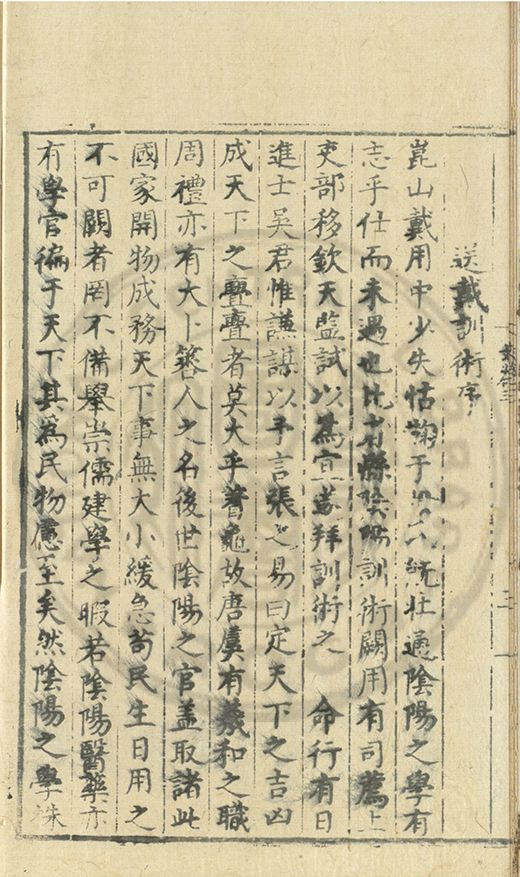 送戴訓術序
崑山戴用中少失怙鞠于既壯通陰陽之學有
志乎仕而未遇也比縣陰陽訓術闕用有司薦上
吏部移欽天監試以為宜遂拜訓術之 命行有日
進士吳君惟謙謀以予言張之易曰定天下之吉凶
成天下之亹亹者莫大乎蓍龜故唐虞有羲和之職
周禮亦有大卜簭人之名後世陰陽之官蓋取諸此
國家開物成務天下事無大小緩急苟民生日用之
不可闕者罔不備舉崇儒建學之暇若陰陽醫藥亦
有學官徧于天下其為民物慮至矣然陰陽之學殊
二